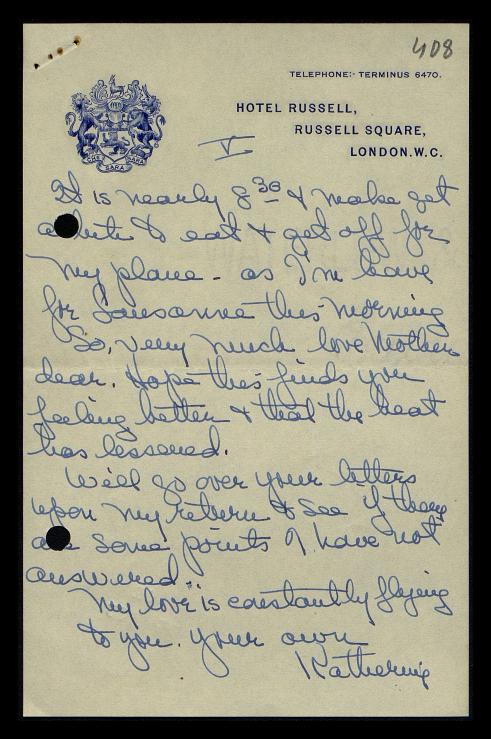 408
TELEPHONE:- TERMINUS 6470.
HOTEL RUSSELL,
RUSSELL SQUARE,
LONDON.W.C.
V
CHE SARA SARA
It is nearly 8 30 & make get
a bite to eat & get off for
my plane - as I'm leave
for Lausanne this morning
So, very much love Mother
dear. Hope this finds you
feeling better & that the heat
has lessened.
We'll go over your letters
upon my return & see if there
are some points I have not
answered.
My love is constantly flying
to you. your own
Katherine